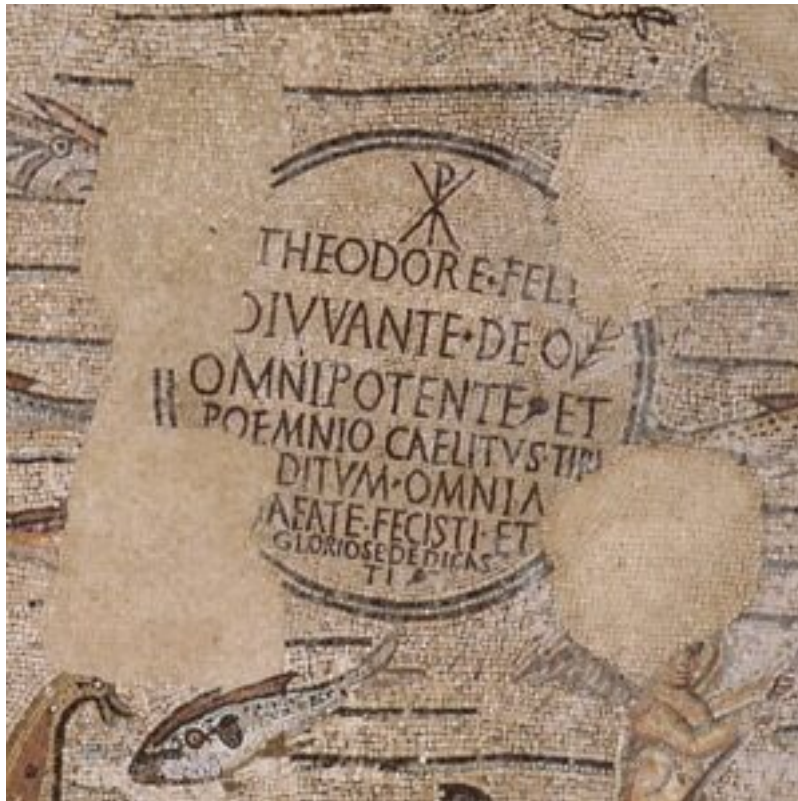 THEODORE·FELI
DIVVANTE·DEO
OMNIPOTENTE ET
POEMNIO CAELITVS·TIBI
DITVM·OMNIA
AEATE·FECISTI·ET
GLORIOSEDEDICAS
TI